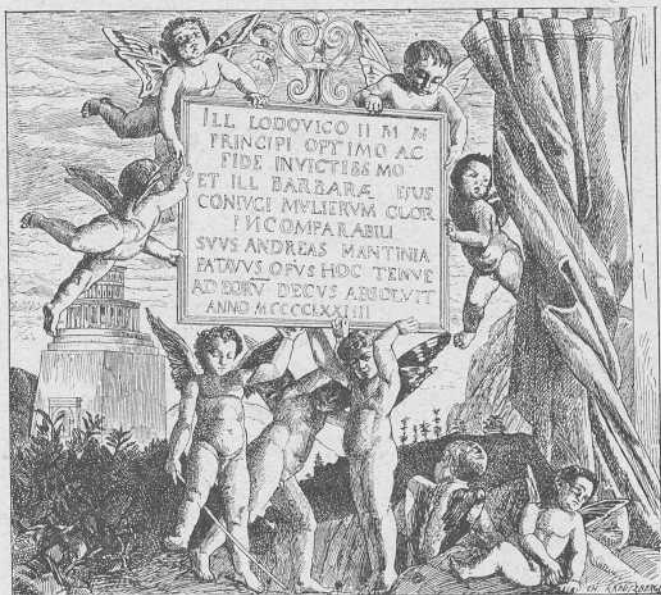 ILL LODOVICO II M M
PRINCIPI OPTIMO AC
FIDE INVICTISS MO
ET ILL BARBARÆ EJUS
CONIUGI MVLIERVM GLOR
INCOMPARABILI
SVVS ANDREAS MANTINIA
PATAVVS OPVS HOC TENVE
AD EORV DECVS ABSOLVIT
ANNO MCCCCLXXIIII
CH KREUTZBERGER